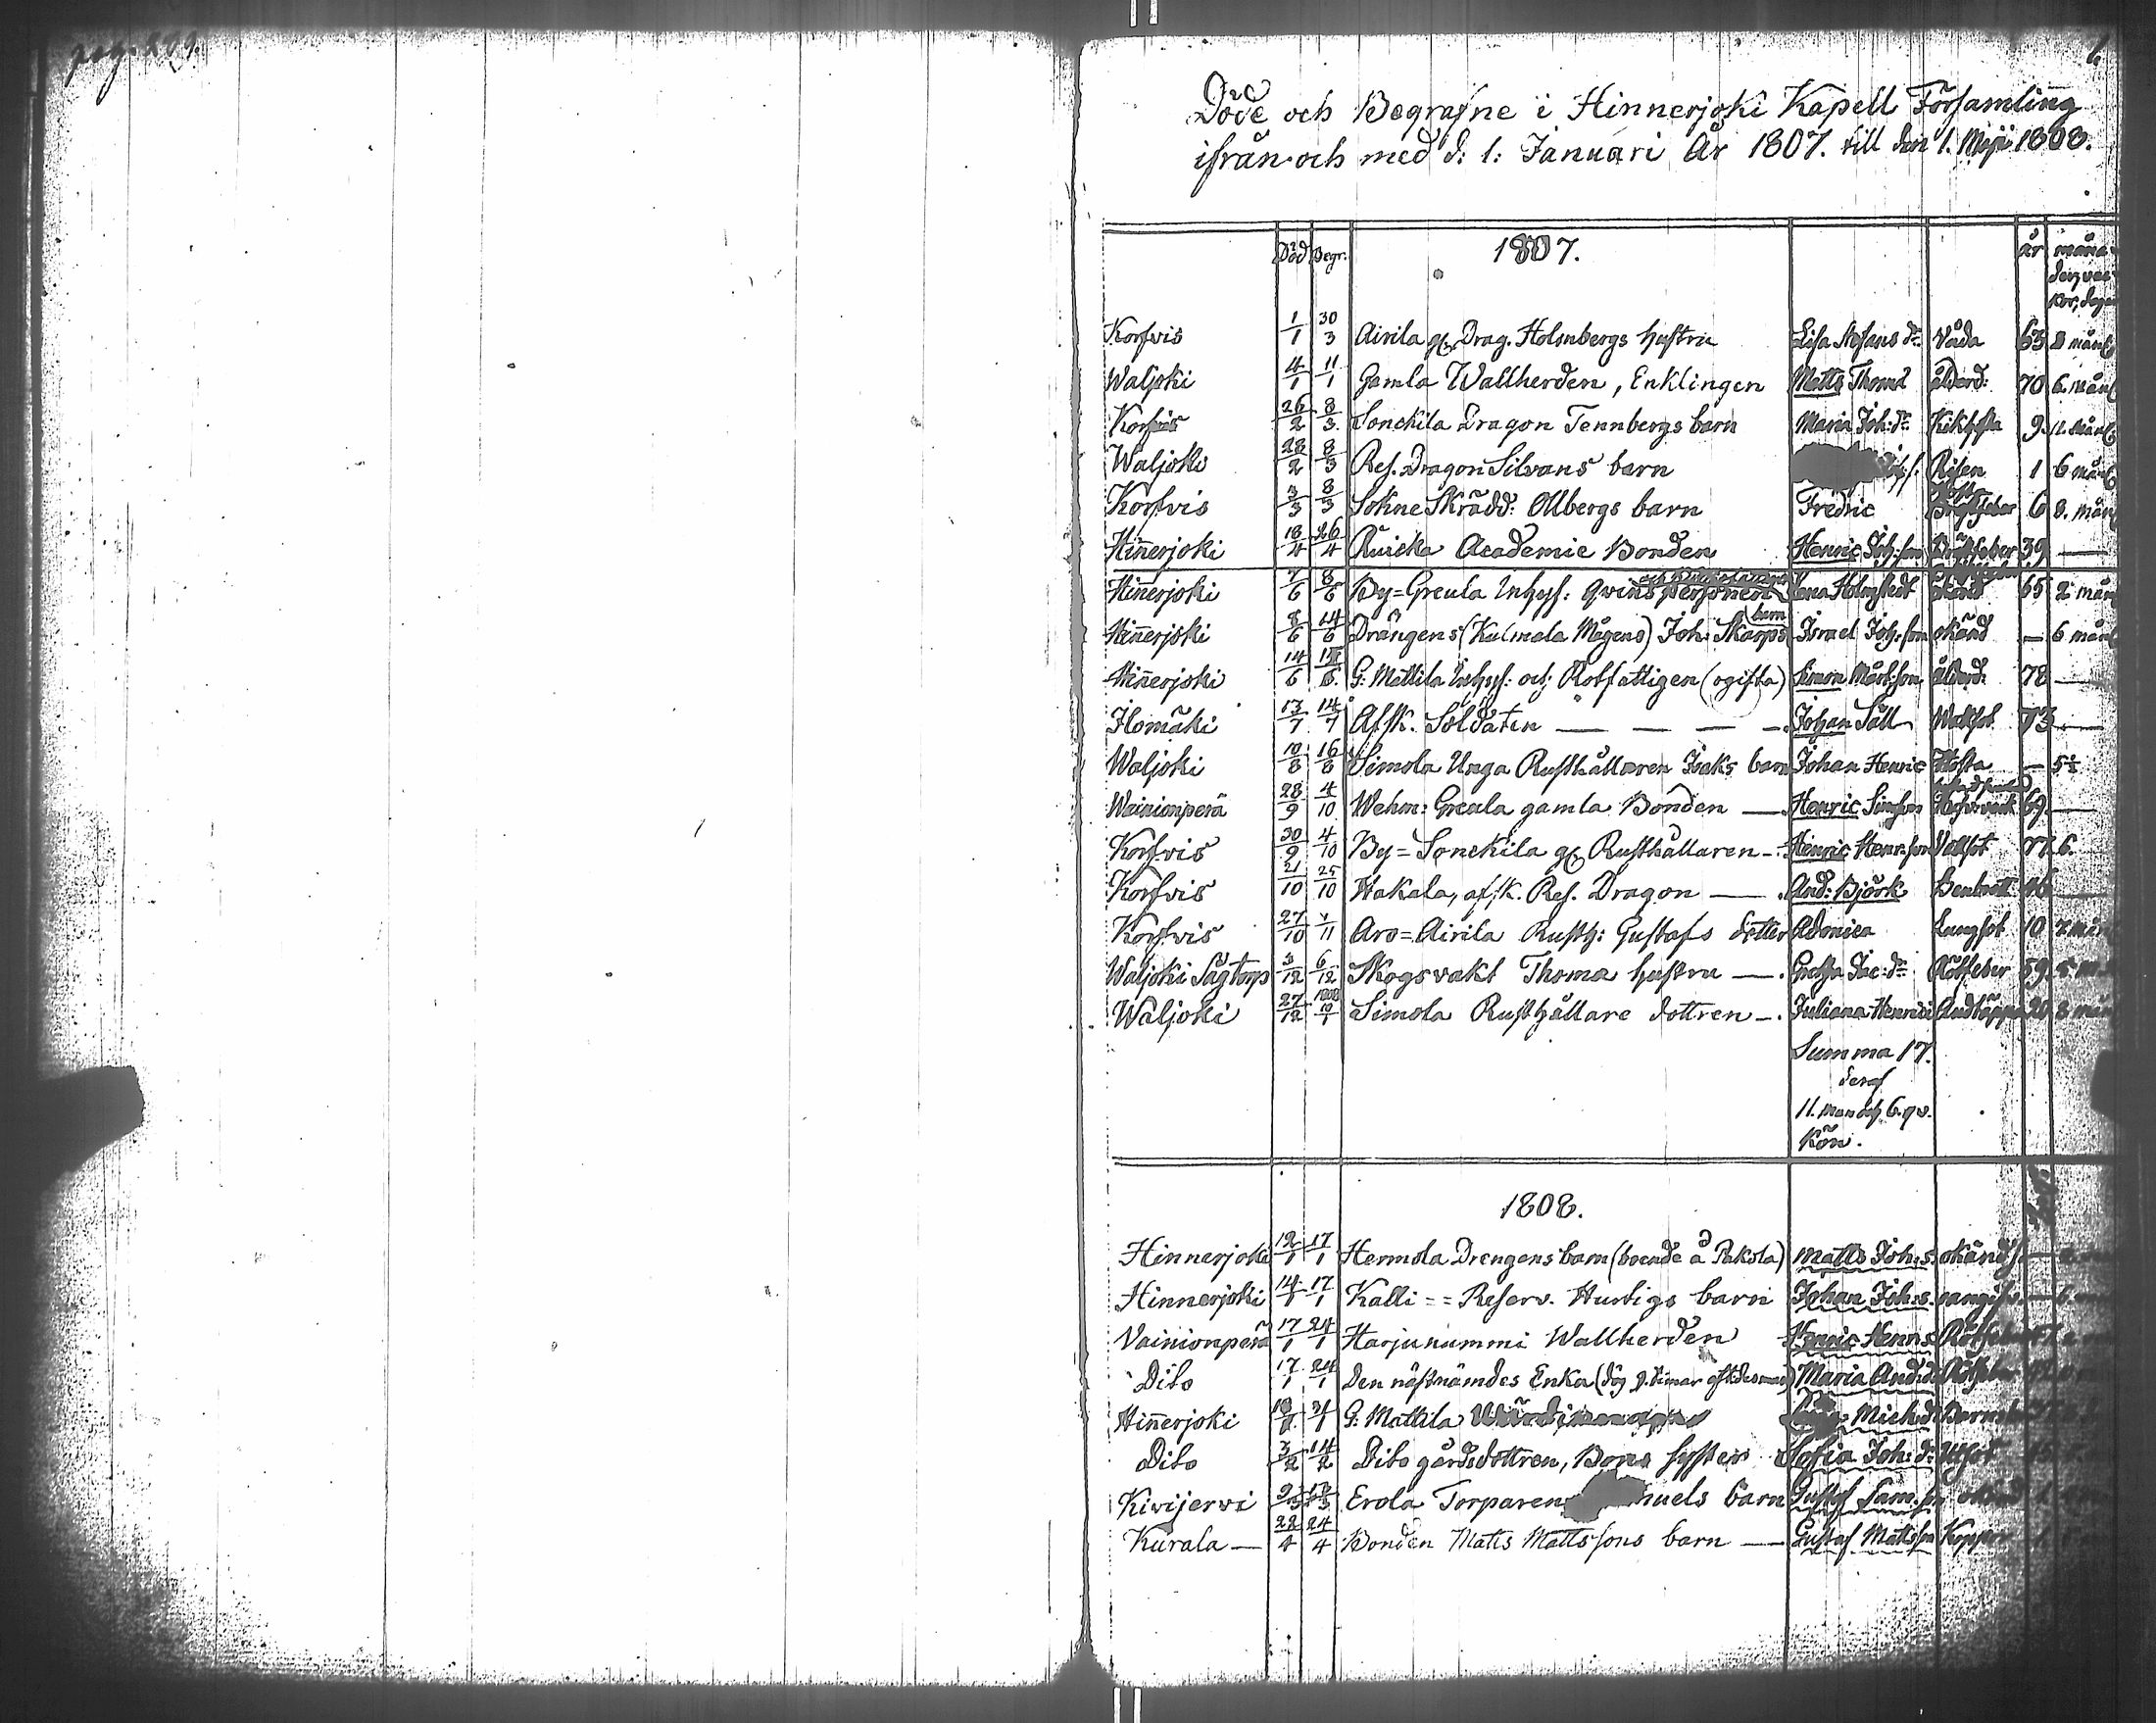 pag. 289.
Döde och Begrafne i Hinnerjoki Kapell Församling
ifrån och med d: 1: Januari År 1807. till den 1. Maji 1808.
Död Begr. 1807. år måna-
der, vec-
kor, dagar
Korfvis 1/1 30/3 Airila gl. Drag. Holmbergs hustru Lisa Stefans dr. Våda 63 8 mån
Waljoki 4/1 11/1 Gamla Wallherden, Enklingen Matts Thoms ålderd: 70 6. mån
Korfvis 26/2 8/3 Sonckila Dragon Tennbergs barn Maria Joh: dr. Kikhosta 9. 11. mån
Waljoki 28/2 8/3 Res. Dragon Silvans barn Risen 1 6 mån
Korfvis 3/3 8/3 Sohne Skrädd: Ollbergs barn Fredric 6 8. mån
Hinnerjoki 18/4 26/4 Ruicka Academie Bonden Henric Joh: son Brästfeber 39 —
Hinnerjoki 7/6 8/6 By=Greula Inhys: qvinspersonen Lena Holmstedt okänd 65 2 mån
Hinnerjoki 8/6 14/6 Drängens (Kulmala Mågens) Joh: Skarps barn Israel Joh: son okänd — 6 mån
Hinnerjoki 14/6 G: Mattila Inhys: och Rotfattigen (ogifta) Simon Mårt: son ålderd: 78 —
Ilomäki 13/7 14/7 Afsk. Soldaten — — — Johan Säll Wattsot 73 —
Waljoki 10/8 16/8 Simola Unga Rusthållaren Isaks barn Johan Henric Hosta — 5½
Wainionperä 28/9 4/10 Wehm: Greula gamla Bonden — Henric Simson 69. —
Korfvis 30/9 4/10 By=Sonckila gl. Rusthållaren — Henric Henr. son Vattsot 77. 6.
Korfvis 21/10 25/10 Hakala, afsk. Res. Dragon — And: Björk 46
Korfvis 27/10 1/11 Aro=Airila Rusth: Gustafs dotter Adonica Lungsot 10 7 mån
Waljoki Sågtorp 3/12 6/12 Skogsvakt Thoma hustru — Gretha Jac: dr. Rötfeber 59.
Waljoki 27/12 1808 10/1 Simola Rusthållare dottren — Juliana Henrici Andtäppa 20. 8 mån
Summa 17.
deraf
11. man och 6. qv.
Kön.
1808.
Hinnerjoki 12/1 17/1 Hermola Drengens barn (boende å Pakola) Matts Joh: s. okänd
Hinnerjoki 14/1 17/1 Kalli == Reserv. Hurtigs barn Johan Joh: s.
Vainionperä 17/1 24/1 Harjunummi Wallherden Henric Henr: s. Rötfeber
Dito 17/1 24/1 Den nästnämdes Enka Maria And: dr Rötfeber
Hinnerjoki G: Mattila Mich: dr
Dito 3/2 14/2 Dito gårdsdottren, Bons syster Sofia Joh: dr
Kivijervi Erola Torparen Gustaf Sam. son okänd
Kurala — 22/4 24/4 Bonden Matts Mattssons barn — Gustaf Matts son Koppor